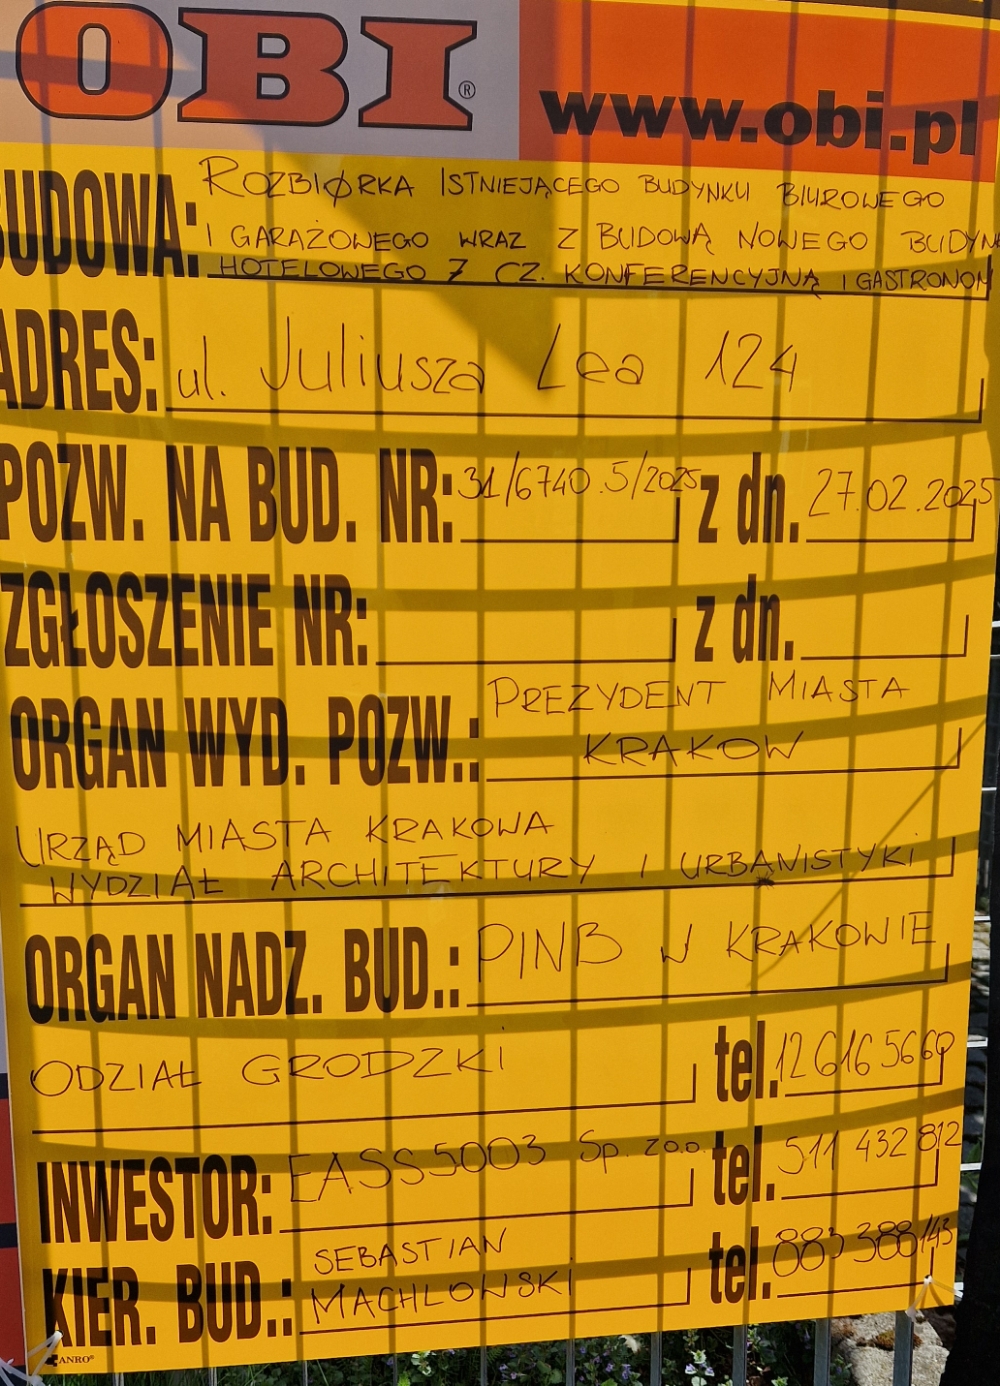 OBI®
www.obi.pl
BUDOWA: ROZBIÓRKA ISTNIEJĄCEGO BUDYNKU BIUROWEGO
I GARAŻOWEGO WRAZ Z BUDOWĄ NOWEGO BUDYN
HOTELOWEGO Z CZ. KONFERENCYJNĄ I GASTRONOM
ADRES: ul. Juliusza Lea 124
POZW. NA BUD. NR: 31/6740.5/2025 z dn. 27.02.2025
ZGŁOSZENIE NR: z dn.
ORGAN WYD. POZW.: PREZYDENT MIASTA
KRAKOW
URZĄD MIASTA KRAKOWA
WYDZIAŁ ARCHITEKTURY I URBANISTYKI
ORGAN NADZ. BUD.: PINB W KRAKOWIE
ODZIAŁ GRODZKI tel. 12 616 5660
INWESTOR: EASS5003 Sp. zoo. tel. 511 432 812
KIER. BUD.: SEBASTIAN
MACHLOWSKI tel. 883 388 143
ANRO®